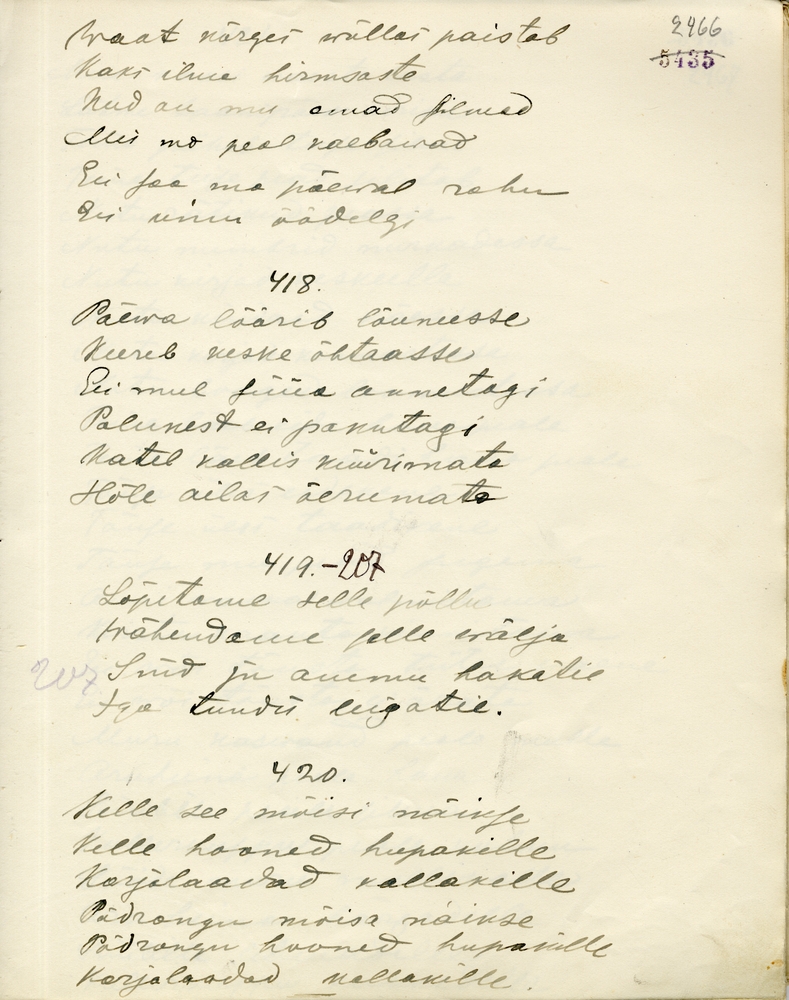 2466
5435
Waat kõrges wõllas paistab
Kaks ilma hirmsaste
Nud on mu omad silmad
Mis mo peal kaebawad
Ei saa ma päewal rahu
Ei unnu öödelgi
418.
Päewa löörib lõuneesse
Keereb keske õhtaasse
Ei mul süüa annetagi
Palukest ei pakutagi
Katel kallis küürimata
Hõle ailas äerumata
419.-207
Lõpetame selle põllu
Wähendame selle wälja
207 Siid ju ammu hakatie
Iga tundis leigatie.
420.
Kelle see mõisi näikse
Kelle hooned hupakille
Karjalaadad kallakille
Pädrangu mõisa näikse
Pädrangu hooned hupakille
Karjalaadad kallakille.